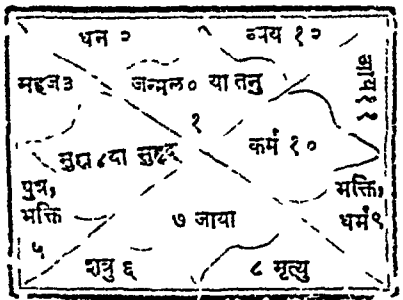 धन २
व्यय १२
सहज ३
जन्मल० या तनु
आय ११
१
सुख ४ वा सुहृद्
कर्म १०
पुत्र,
भक्ति
५
७ जाया
भक्ति,
धर्म ९
शत्रु ६
८ मृत्यु